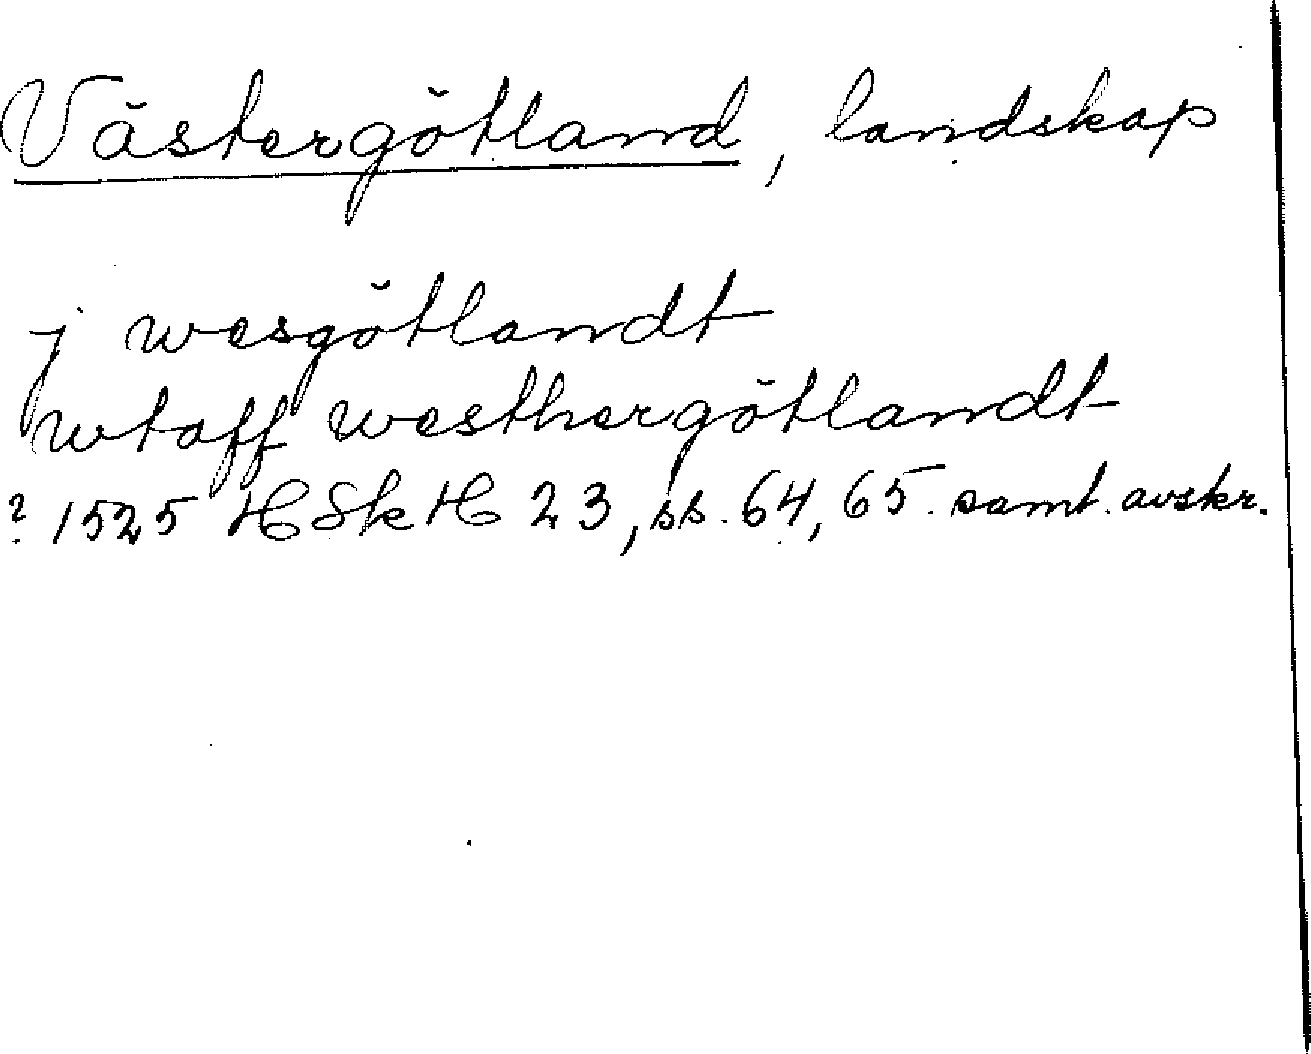 Västergötland, landskap
j wesgötlandt
wtaff westhergötlandt
? 1525 HSkH 23, ss. 64, 65. samt. avskr.